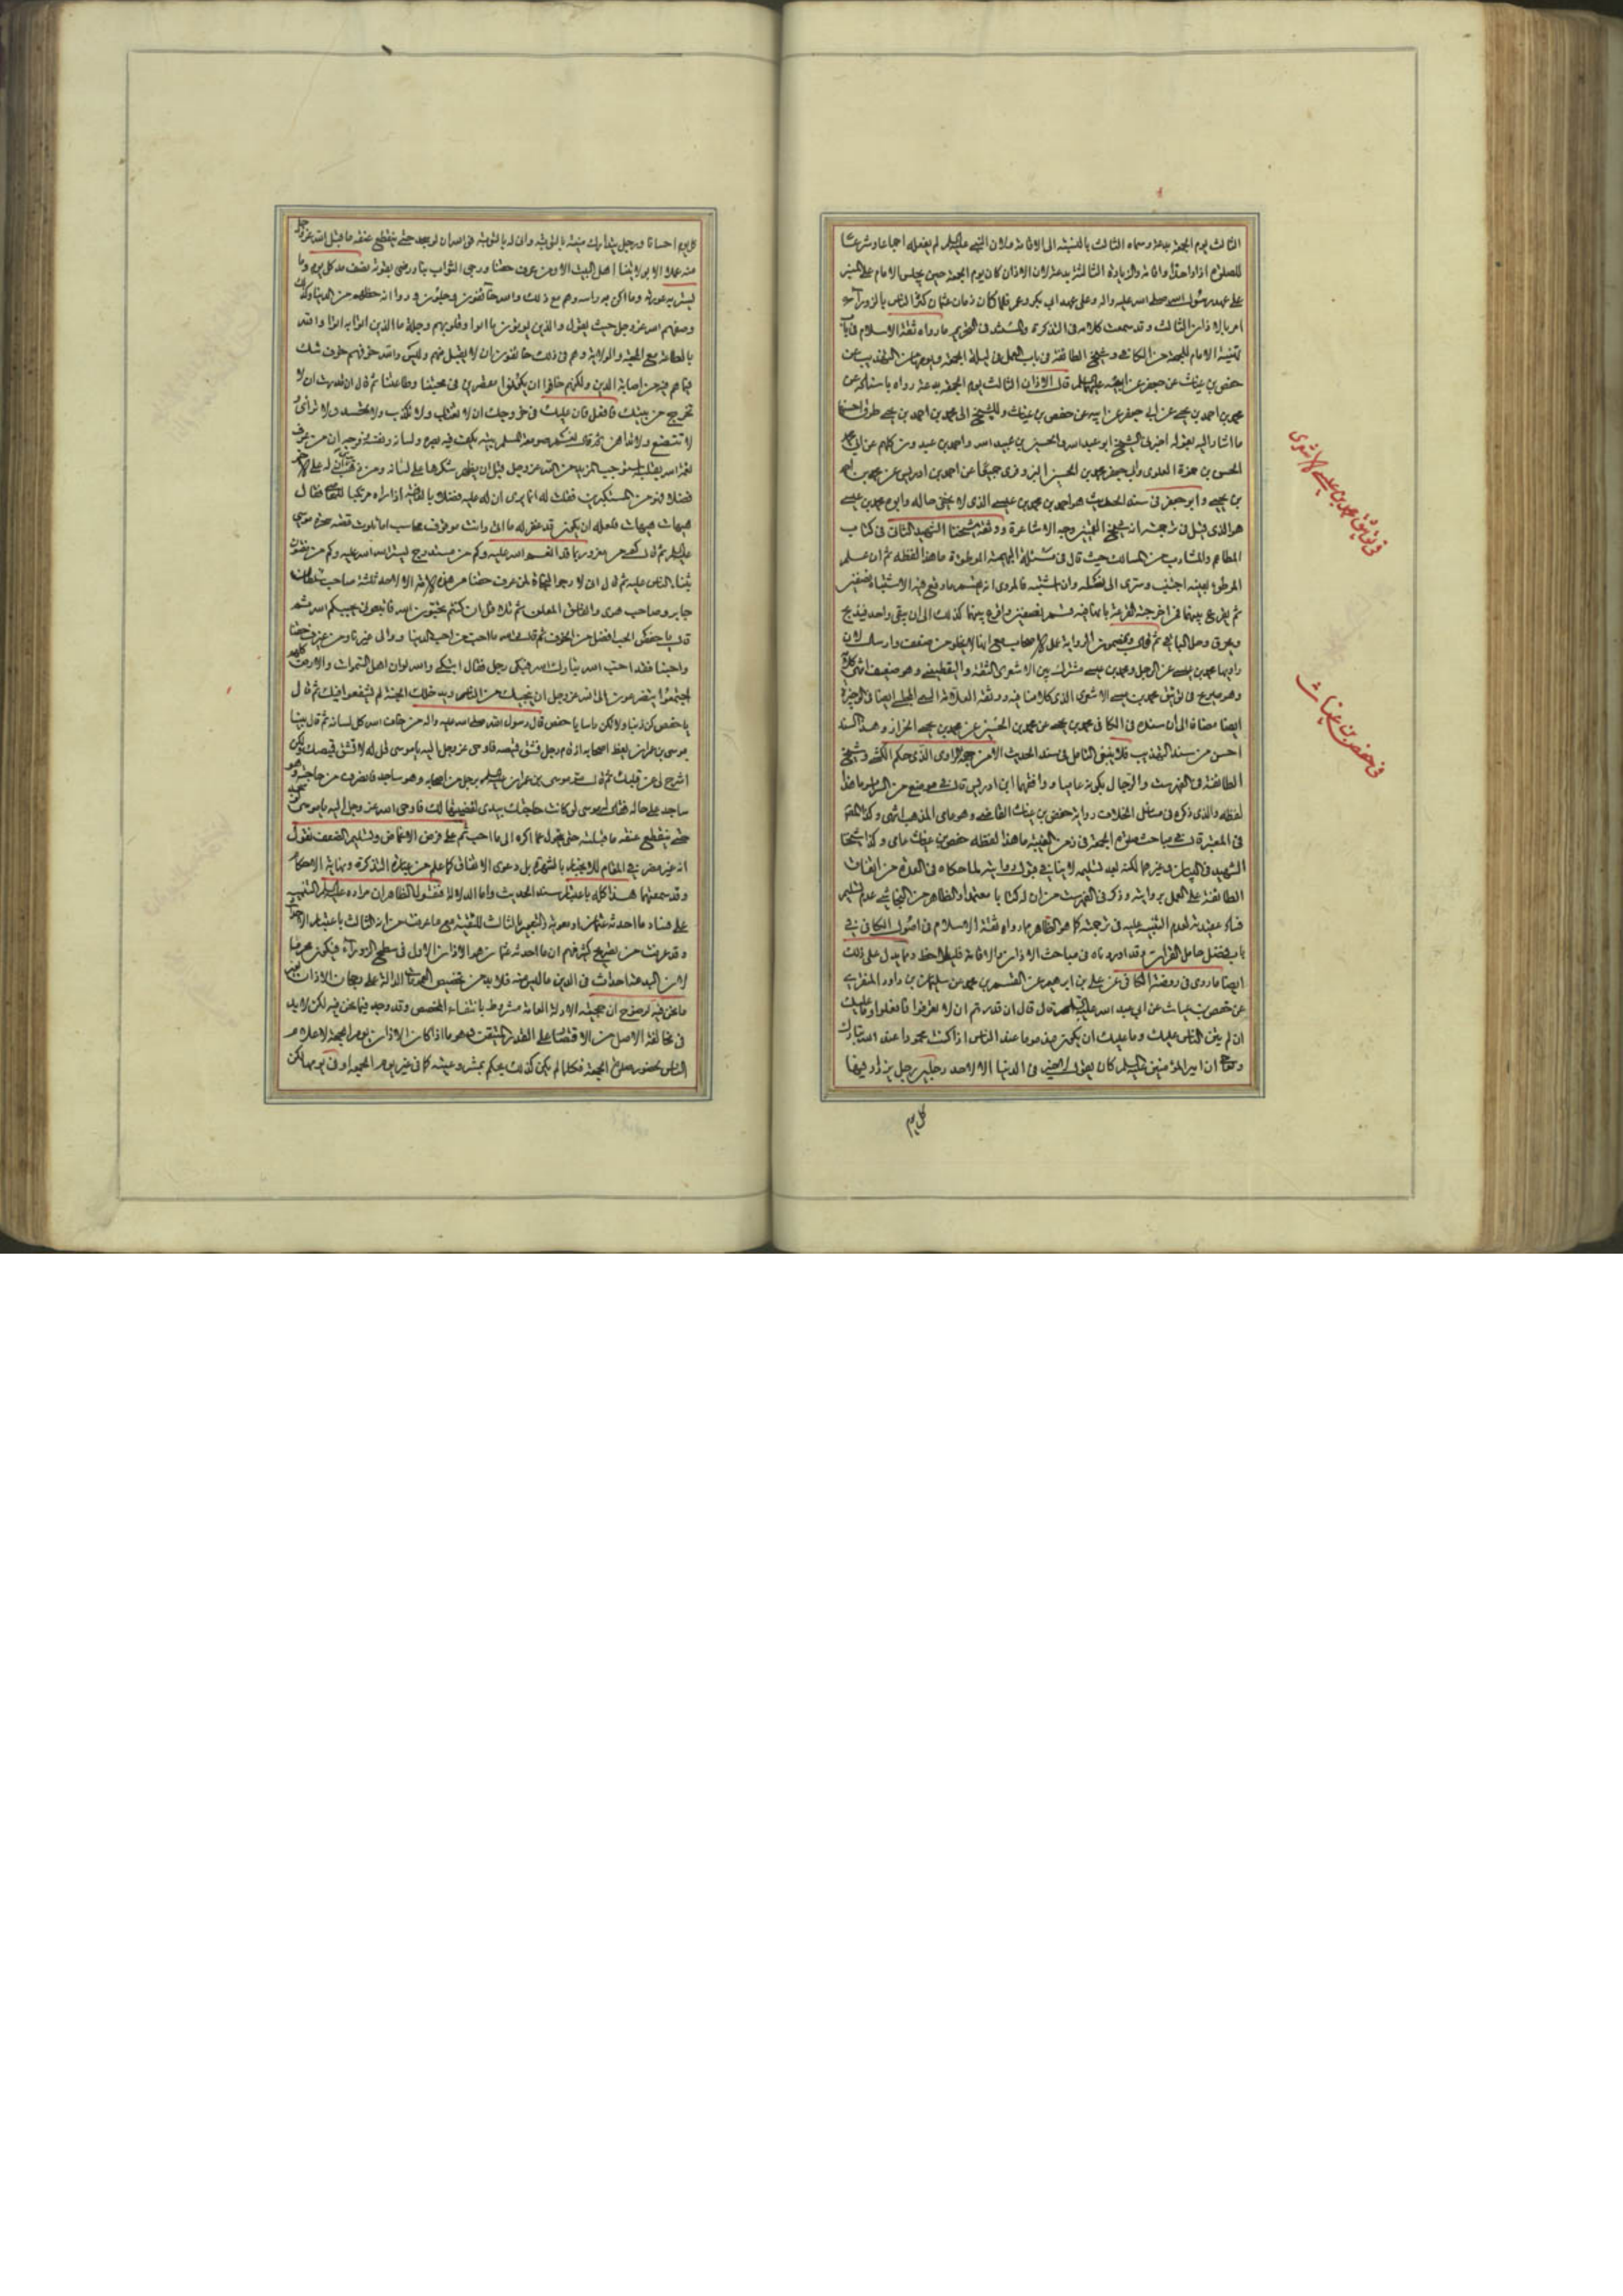 الثالث يوم الجمعة بدعة وسماه الثالث بالنسبة الى الاقامة ولان النبي عليه السلم لم يفعله اجماعا وشرع
للصلوة اذانا واحدا واقامة والزيادة الثالثة بدعة لان الاذان كان يوم الجمعة حين يجلس الامام على المنبر
على عهد رسول الله صلى الله عليه واله وعلى عهد ابي بكر وعمر فلما كان زمان عثمان كثر الناس بالزوراء
امر بالاذان الثالث وقد سمعت كلامه في التذكرة والمستند في التحريم ما رواه ثقة الاسلام في باب
تهيئة الامام للجمعة من الكافي وشيخ الطائفة في باب العمل في ليلة الجمعة ويومها من التهذيب عن
حفص بن غياث عن جعفر عن ابيه عليهما السلم قال الاذان الثالث يوم الجمعة بدعة رواه باسناده عن
محمد بن احمد بن يحيى عن ابي جعفر عن ابيه عن حفص بن غياث وللشيخ الى محمد بن احمد بن يحيى طرق احسنها
ما اشار اليه بقوله اخبرني الشيخ ابو عبد الله والحسين بن عبيد الله واحمد بن عبدون كلهم عن ابي محمد
الحسن بن حمزة العلوي وابي جعفر محمد بن الحسين البزوفري جميعا عن احمد بن ادريس عن محمد بن احمد
بن يحيى وابو جعفر في سند الحديث هو احمد بن محمد بن عيسى الذي لا يخفى حاله وابوه محمد بن عيسى
هو الذي قيل في ترجمته انه شيخ القميين ووجه الاشاعرة ووثقه شيخنا الشهيد الثاني في كتاب
المطاعم والمشارب من المسالك حيث قال في مسئلة البهيمة الموطوءة ما هذا لفظه ثم ان علم
الموطوء بعينه اجتنب وسرى الى نسله وان اشتبه فالمروي انه يقسم ما وقع فيه الاشتباه نصفين
ثم يقرع بينهما فمن اخرجته القرعة بانها فيه قسم نصفين واقرع بينهما كذلك الى ان يبقى واحد فيذبح
ويحرق وحل الباقي ثم قال وبمضمون الرواية عمل الاصحاب مع انها لا يخلو من ضعف وارسال لان
راويها محمد بن عيسى عن الرجل ومحمد بن عيسى مشترك بين الاشعري الثقة واليقطيني وهو ضعيف انتهى كلامه
وهو صريح في توثيق محمد بن عيسى الاشعري الذي كلامنا فيه ووثقه العلامة السمي المجلسي ايضا في الوجيزة
ايضا مضافا الى ان سنده في الكافي محمد بن يحيى عن محمد بن الحسين عن محمد بن يحيى الخزاز وهذا السند
احسن من سند التهذيب فلا ينبغي التامل في سند الحديث الا من جهة الراوي الذي حكم الكشي وشيخ
الطائفة في الفهرست والرجال بكونه عاميا ووافقهما ابن ادريس قال في موضع من السرائر ما هذا
لفظه والذي ذكره في مسائل الخلاف رواية حفص بن غياث القاضي وهو عامي المذهب انتهى وكذا المحقق
في المعتبر قال في مباحث صلوة الجمعة في زمن الغيبة ما هذا لفظه حفص بن غياث عامي وكذا شيخنا
الشهيد في البيان وغيرهما لكنه بعد تسليمه لا ينافي قبول روايته لما حكاه في العدة من اتفاق
الطائفة على العمل بروايته وذكر في الفهرست من ان له كتابا معتمدا والظاهر من النجاشي عدم تسليم
فساد عقيدته لعدم التنبيه عليه في ترجمته كما هو الظاهر مما رواه ثقة الاسلام في اصول الكافي في
باب فضل حامل القران وقد اوردناه في مباحث الاذان والاقامة فليلاحظ ومما يدل على ذلك
ايضا ما روى في روضة الكافي عن علي بن ابراهيم عن القسم بن محمد عن سليمن بن داود المنقري
عن حفص بن غياث عن ابي عبد الله عليه السلم قال قال ان قدرتم ان لا تعرفوا فافعلوا وما عليك
ان لم يثن الناس عليك وما عليك ان يكون مذموما عند الناس اذا كنت محمودا عند الله تبارك
وتعالى ان امير المؤمنين عليه السلم كان يقول لا خير في الدنيا الا لاحد رجلين رجل يزداد فيها
كل يوم
في توثيق محمد بن عيسى الاشعري
في حفص بن غياث
كل يوم احسانا ورجل يتدارك منيته بالتوبة وانى له بالتوبة فوالله ان لو سجد حتى ينقطع عنقه ما قبل الله عز وجل
منه عملا الا بولايتنا اهل البيت الا ومن عرف حقنا ورجى الثواب بنا ورضي بقوته نصف مد كل يوم وما
يستر به عورته وما اكن به راسه وهم مع ذلك والله خائفون وجلون ودوا انه حظهم من الدنيا وكذلك
وصفهم الله عز وجل حيث يقول والذين يؤتون ما اتوا وقلوبهم وجلة ما الذين اتوا به اتوا والله
بالطاعة مع المحبة والولاية وهم في ذلك خائفون ان لا يقبل منهم وليس والله خوفهم خوف شك
فيما هم فيه من اصابة الدين ولكنهم خافوا ان يكونوا مقصرين في محبتنا وطاعتنا ثم قال ان قدرت ان لا
تخرج من بيتك فافعل فان عليك في خروجك ان لا تغتاب ولا تكذب ولا تحسد ولا ترائي
ولا تتصنع ولا تداهن ثم قال نعم صومعة المسلم بيته يكف فيه بصره ولسانه ونفسه وفرجه ان من عرف
نعمة الله بقلبه استوجب المزيد من الله عز وجل قبل ان يظهر شكرها على لسانه ومن ذهب يرى ان له على الاخر
فضلا فهو من المستكبرين فقلت له انما يرى ان له عليه فضلا بالعافية اذا راه مرتكبا للمعاصي فقال
هيهات هيهات فلعله ان يكون قد غفر له ما اتى وانت موقوف محاسب اما تلوت قصة سحرة موسى
عليه السلم ثم قال كم من مغرور بما قد انعم الله عليه وكم من مستدرج بستر الله عليه وكم من مفتون
بثناء الناس عليه ثم قال اني لارجو النجاة لمن عرف حقنا من هذه الامة الا لاحد ثلثة صاحب سلطان
جابر وصاحب هوى والفاسق المعلن ثم تلا قل ان كنتم تحبون الله فاتبعوني يحببكم الله ثم
قال يا حفص الحب افضل من الخوف ثم قال والله ما احب الله من احب الدنيا ووالى غيرنا ومن عرف حقنا
واحبنا فقد احب الله تبارك الله فبكى رجل فقال اتبكي والله لو ان اهل السموات والارض كلهم
اجتمعوا يتضرعون الى الله عز وجل ان ينجيك من النار ويدخلك الجنة لم يشفعوا فيك ثم قال
يا حفص كن ذنبا ولا تكن راسا يا حفص قال رسول الله صلى الله عليه واله من خاف الله كل لسانه ثم قال بينا
موسى بن عمران يعظ اصحابه اذ قام رجل فشق قميصه فاوحى عز وجل اليه يا موسى قل له لا تشق قميصك ولكن
اشرح لي عن قلبك ثم قال مر موسى بن عمران عليه السلم برجل من اصحابه وهو ساجد فانصرف من حاجته وهو
ساجد على حاله فقال له موسى لو كانت حاجتك بيدي لقضيتها لك فاوحى الله عز وجل اليه يا موسى لو سجد
حتى ينقطع عنقه ما قبلته حتى يتحول عما اكره الى ما احب ثم على فرض الاغماض وتسليم الضعف نقول
انه غير مضر في المقام للانجبار بالشهرة بل دعوى الاتفاق كما علم من عبارة التذكرة ونهاية الاحكام
وقد سمعتهما هذا كله باعتبار سند الحديث واما الدلالة فنقول الظاهر ان مراده عليه السلم التنبيه
على فساد ما احدثه عثمان او معوية والتعبير بالثالث للتقية مع ما عرفت من انه الثالث باعتبار الاحداث
وقد عرفت من تصريح كثير منهم ان ما احدثه عثمان هو الاذان الاول في سطح الزوراء فيكون محرما
لان البدعة احداث في الدين ما ليس منه فلا بد من تخصيص العمومات الدالة على رجحان الاذان بغير
ما نحن فيه لوضوح ان حجية الادلة العامة مشروط بانتفاء المخصص وقد وجد فيما نحن فيه لكن لا بد
في مخالفة الاصل من الاقتصار على القدر المتيقن وهو ما اذا كان الاذان يوم الجمعة لاعلام
الناس بحضور صلوة الجمعة فكلما لم يكن كذلك يحكم بمشروعيته كما في غير يوم الجمعة او في يومها لكن